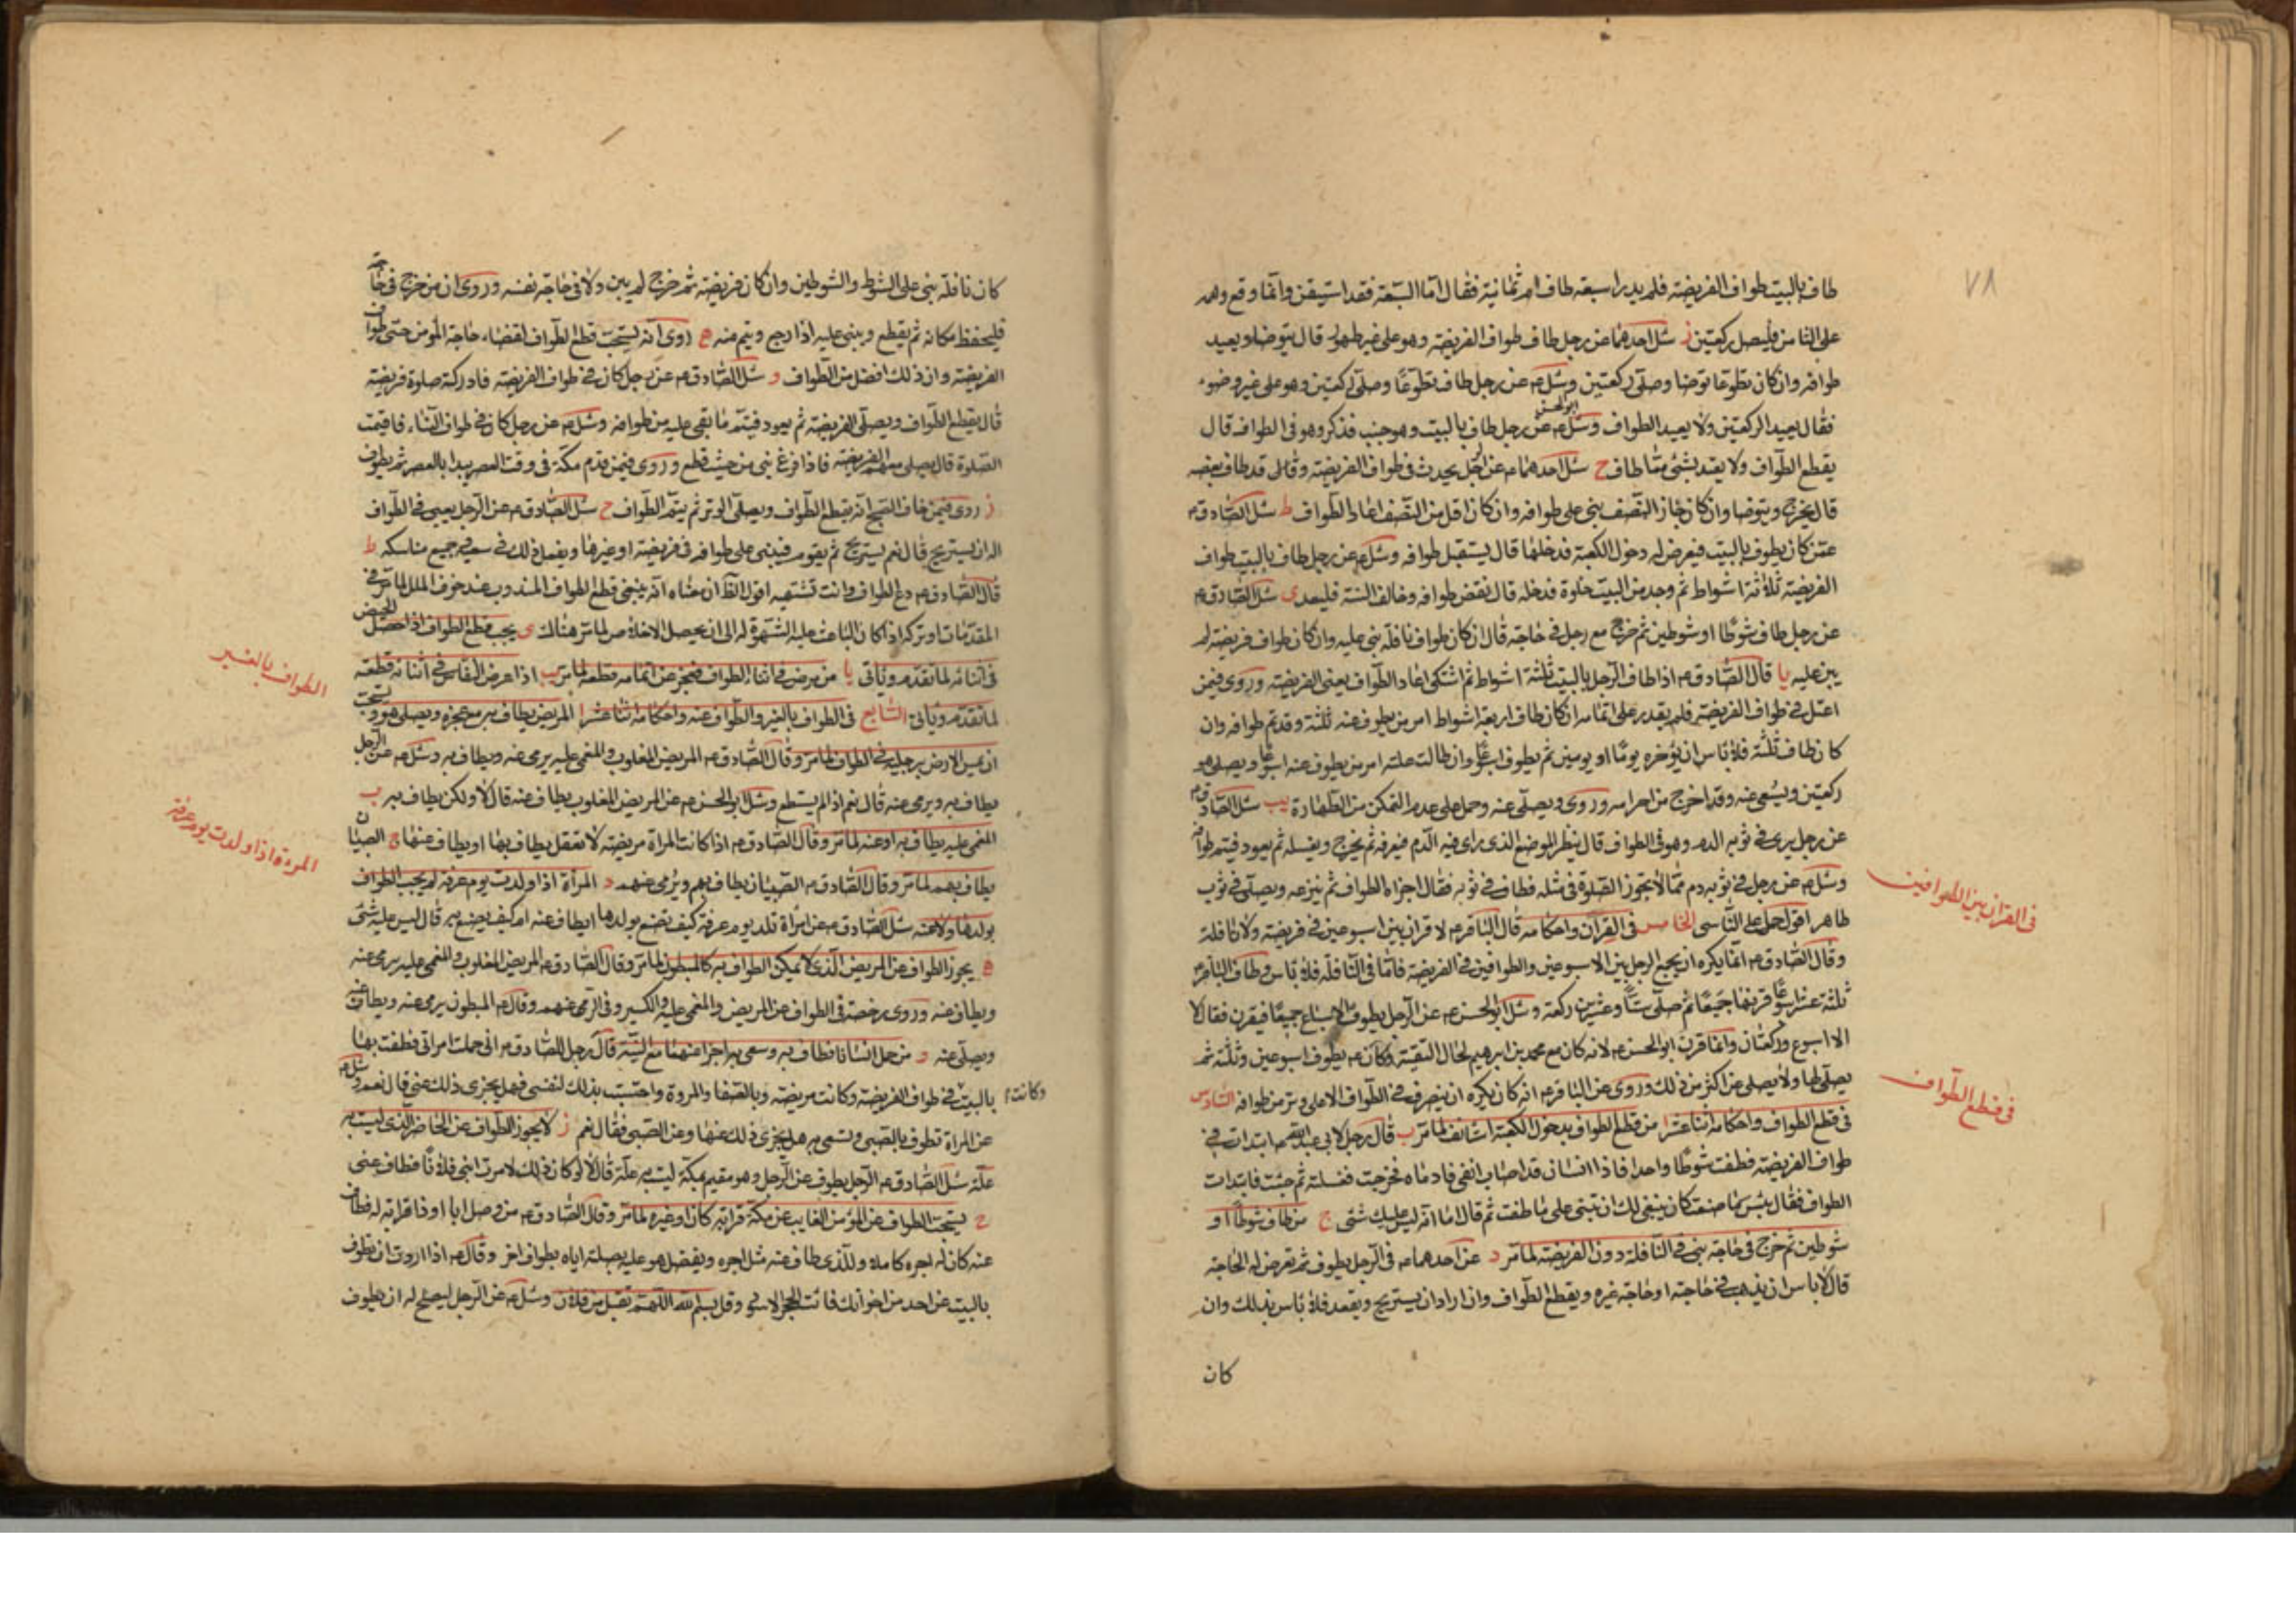 ٧٨
طاف بالبيت طواف الفريضة فلم يدر اسبعة طاف ام ثمانية فقال اما السبعة فقد استيقن وانما وقع وهمه
على الثامن فليصل ركعتين ز سئل احدهما عن رجل طاف طواف الفريضة وهو على غير طهور قال يتوضا ويعيد
طوافه وان كان تطوعا توضا وصلى ركعتين وسئل م عن رجل طاف تطوعًا وصلى ركعتين وهو على غير وضوء
فقال يعيد الركعتين ولا يعيد الطواف وسئل ابو الحسن م عن رجل طاف بالبيت وهو جنب فذكر وهو في الطواف قال
يقطع الطواف ولا يعتد بشئ مما طاف ح سئل احدهما م عن الرجل يحدث في طواف الفريضة وقد طاف بعضه
قال يخرج ويتوضا وان كان جاز النصف بنى على طوافه وان كان اقل من النصف اعاد الطواف ط سئل الصادق م
عمن كان يطوف بالبيت فيعرض له دخول الكعبة فدخلها قال يستقبل طوافه وسئل م عن رجل طاف بالبيت طواف
الفريضة ثلاثة اشواط ثم وجد من البيت خلوة فدخله قال نقض طوافه وخالف السنة فليعد ى سئل الصادق م
عن رجل طاف شوطًا او شوطين ثم خرج مع رجل في حاجة قال ان كان طواف نافلة بنى عليه وان كان طواف فريضة لم
يبن عليه يا قال الصادق م اذا طاف الرجل بالبيت ثلثة اشواط ثم اشتكى اعاد الطواف يعني الفريضة وروى فيمن
اعتل في طواف الفريضة فلم يقدر على اتمامه ان كان طاف اربعة اشواط امر من يطوف عنه ثلثة وقد تم طوافه وان
كان طاف ثلثة فلا باس ان يؤخره يومًا او يومين ثم يطوف اسبوعًا وان طالت علته امر من يطوف عنه اسبوعًا ويصلى هو
ركعتين ويسعى عنه وقد اخرج من احرامه وروى ويصلى عنه وحمل على عدم التمكن من الطهارة يب سئل الصادق م
عن رجل يرى في ثوبه الدم وهو في الطواف قال ينظر الموضع الذى راى فيه الدم فيعرفه ثم يخرج ويغسله ثم يعود فيتم طوافه
وسئل م عن رجل في ثوبه دم مما لا يجوز الصلوة في مثله فطاف في ثوبه فقال اجزاه الطواف ثم ينزعه ويصلى في ثوب
طاهر اقول حمل على الناسى الخامس في القران واحكامه قال الباقر م لا قران بين اسبوعين في فريضة ولا نافلة
في القران بين الطوافين
وقال الصادق م انما يكره ان يجمع الرجل بين الاسبوعين والطوافين في الفريضة فاما في النافلة فلا باس وطاف الباقر م
ثلثة عشر اسبوعًا قرنها جميعًا ثم صلى ستًا وعشرين ركعة وسئل ابو الحسن م عن الرجل يطوف الاسباع جميعًا فيقرن فقال لا
الا اسبوع وركعتان وانما قرن ابو الحسن م لانه كان مع محمد بن ابرهيم لحال التقية وكان م يطوف اسبوعين وثلثة ثم
يصلى لها ولا يصلى عن اكثر من ذلك وروى عن الباقر م انه كان يكره ان ينصرف في الطواف الا على وتر من طوافه السادس
في قطع الطواف
في قطع الطواف واحكامه اثنا عشر ا من قطع الطواف بدخول الكعبة استانف لما مر ب قال رجل لابى عبد الله م ابتدات في
طواف الفريضة فطفت شوطًا واحدا فاذا انسان قد اصاب انفى فادماه فخرجت فغسلته ثم جئت فابتدات
الطواف فقال بئس ما صنعت كان ينبغى لك ان تبنى على ما طفت ثم قال اما انه ليس عليك شئ ج من طاف شوطًا او
شوطين ثم خرج في حاجة بنى في النافلة دون الفريضة لما مر د عن احدهما م في الرجل يطوف ثم تعرض له الحاجة
قال لا باس ان يذهب في حاجته او حاجة غيره ويقطع الطواف وان اراد ان يستريح ويقعد فلا باس بذلك وان
كان
كان نافلة بنى على الشوط والشوطين وان كان فريضة ثم خرج لم يبن ولا في حاجة نفسه وروى ان من خرج في حاجة
فليحفظ مكانه ثم يقطع ويبنى عليه اذا رجع ويتم منه ه روى انه يستحب قطع الطواف لقضاء حاجة المؤمن حتى طواف
الفريضة وان ذلك افضل من الطواف و سئل الصادق م عن رجل كان في طواف الفريضة فادركته صلوة فريضة
قال يقطع الطواف ويصلى الفريضة ثم يعود فيتم ما بقى عليه من طوافه وسئل م عن رجل كان في طواف النساء فاقيمت
الصلوة قال يصلى معهم الفريضة فاذا فرغ بنى من حيث قطع وروى فيمن قدم مكة في وقت العصر يبدا بالعصر ثم يطوف
ز روى فيمن خاف الصبح انه يقطع الطواف ويصلى الوتر ثم يتم الطواف ح سئل الصادق م عن الرجل يعيى في الطواف
اله ان يستريح قال نعم يستريح ثم يقوم فيبنى على طوافه في فريضة او غيرها ويفعل ذلك في سعيه وجميع مناسكه ط
قال الصادق م دع الطواف وانت تشتهيه اقول الظ ان معناه انه ينبغى قطع الطواف المندوب عند خوف الملل لما مر في
المقدمات او تركه اذا كان الباعث عليه الشهوة له الى ان يحصل الاخلاص لما مر هناك ى يجب قطع الطواف اذا حصل الحيض
في اثنائه لما تقدم وياتى يا من مرض في اثناء الطواف فعجز عن اتمامه قطعه لما مر يب اذا عرض النفاس في اثنائه قطعته
الطواف بالغير
لما تقدم وياتى السابع في الطواف بالغير والطواف عنه واحكامه اثنا عشر ا المريض يطاف به مع عجزه ويصلى هو ويستحب
ان يمس الارض برجليه في الطواف لما مر وقال الصادق م المريض المغلوب والمغمى عليه يرمى عنه ويطاف به وسئل م عن الرجل
يطاف به ويرمى عنه قال نعم اذا لم يستطع وسئل ابو الحسن م عن المريض المغلوب يطاف عنه قال لا ولكن يطاف به ب
المغمى عليه يطاف به او عنه لما مر وقال الصادق م اذا كانت المراة مريضة لا تعقل يطاف بها او يطاف عنها ج الصبيان
المرءة اذا ولدت يوم عرفة
يطاف بهم لما مر وقال الصادق م الصبيان يطاف بهم ويرمى عنهم د المراة اذا ولدت يوم عرفة لم يجب الطواف
بولدها ولا عنه سئل الصادق م عن امراة تلد يوم عرفة كيف تصنع بولدها ايطاف عنه ام كيف يصنع به قال ليس عليه شئ
ه يجوز الطواف عن المريض الذى لا يمكن الطواف به كالمبطون لما مر وقال الصادق م المريض المغلوب والمغمى عليه يرمى عنه
ويطاف عنه وروى رخصة في الطواف عن المريض والمغمى عليه والكسير وفى الرمى عنهم وقال م المبطون يرمى عنه ويطاف عنه
ويصلى عنه و من حمل انسانا فطاف به وسعى به اجزا عنهما مع النية قال رجل للصادق م انى حملت امراتى فطفت بها
وكانت م
بالبيت في طواف الفريضة وكانت مريضة وبالصفا والمروة واحتسبت بذلك لنفسى فهل يجزى ذلك عنى قال نعم وسئل م
عن المراة تطوف بالصبى وتسعى به هل يجزى ذلك عنها وعن الصبى فقال نعم ز لا يجوز الطواف عن الحاضر الذى ليست به
علة سئل الصادق م الرجل يطوف عن الرجل وهو مقيم بمكة ليست به علة قال لا لو كان ذلك لامرت ابنى فلانًا فطاف عنى
ح يستحب الطواف عن المؤمن الغايب عن مكة قرابة كان او غيره لما مر وقال الصادق م من وصل ابا او ذا قرابة له فطاف
عنه كان له اجره كاملا وللذى طاف عنه مثل اجره ويفضل هو عليه بصلته اياه بطواف اخر وقال م اذا اردت ان تطوف
بالبيت عن احد من اخوانك فائت الحجر الاسود وقل بسم الله اللهم تقبل من فلان وسئل م عن الرجل ايصلح له ان يطوف